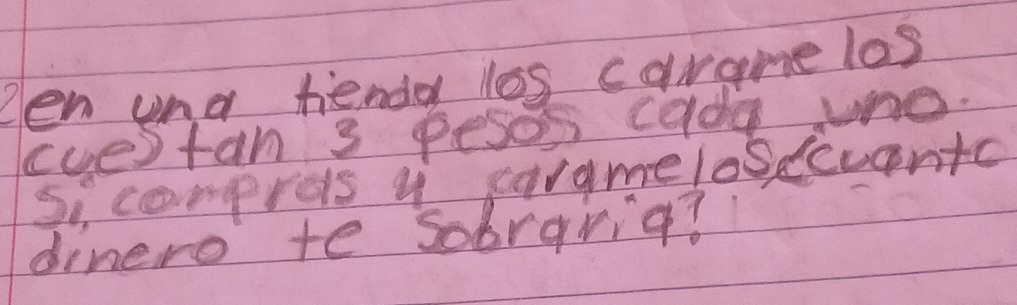 2 en una tienda los caramelos
cuestan 3 pesos cada uno.
Si compras 4 caramelos ¿cuanto
dinero te sobraria?